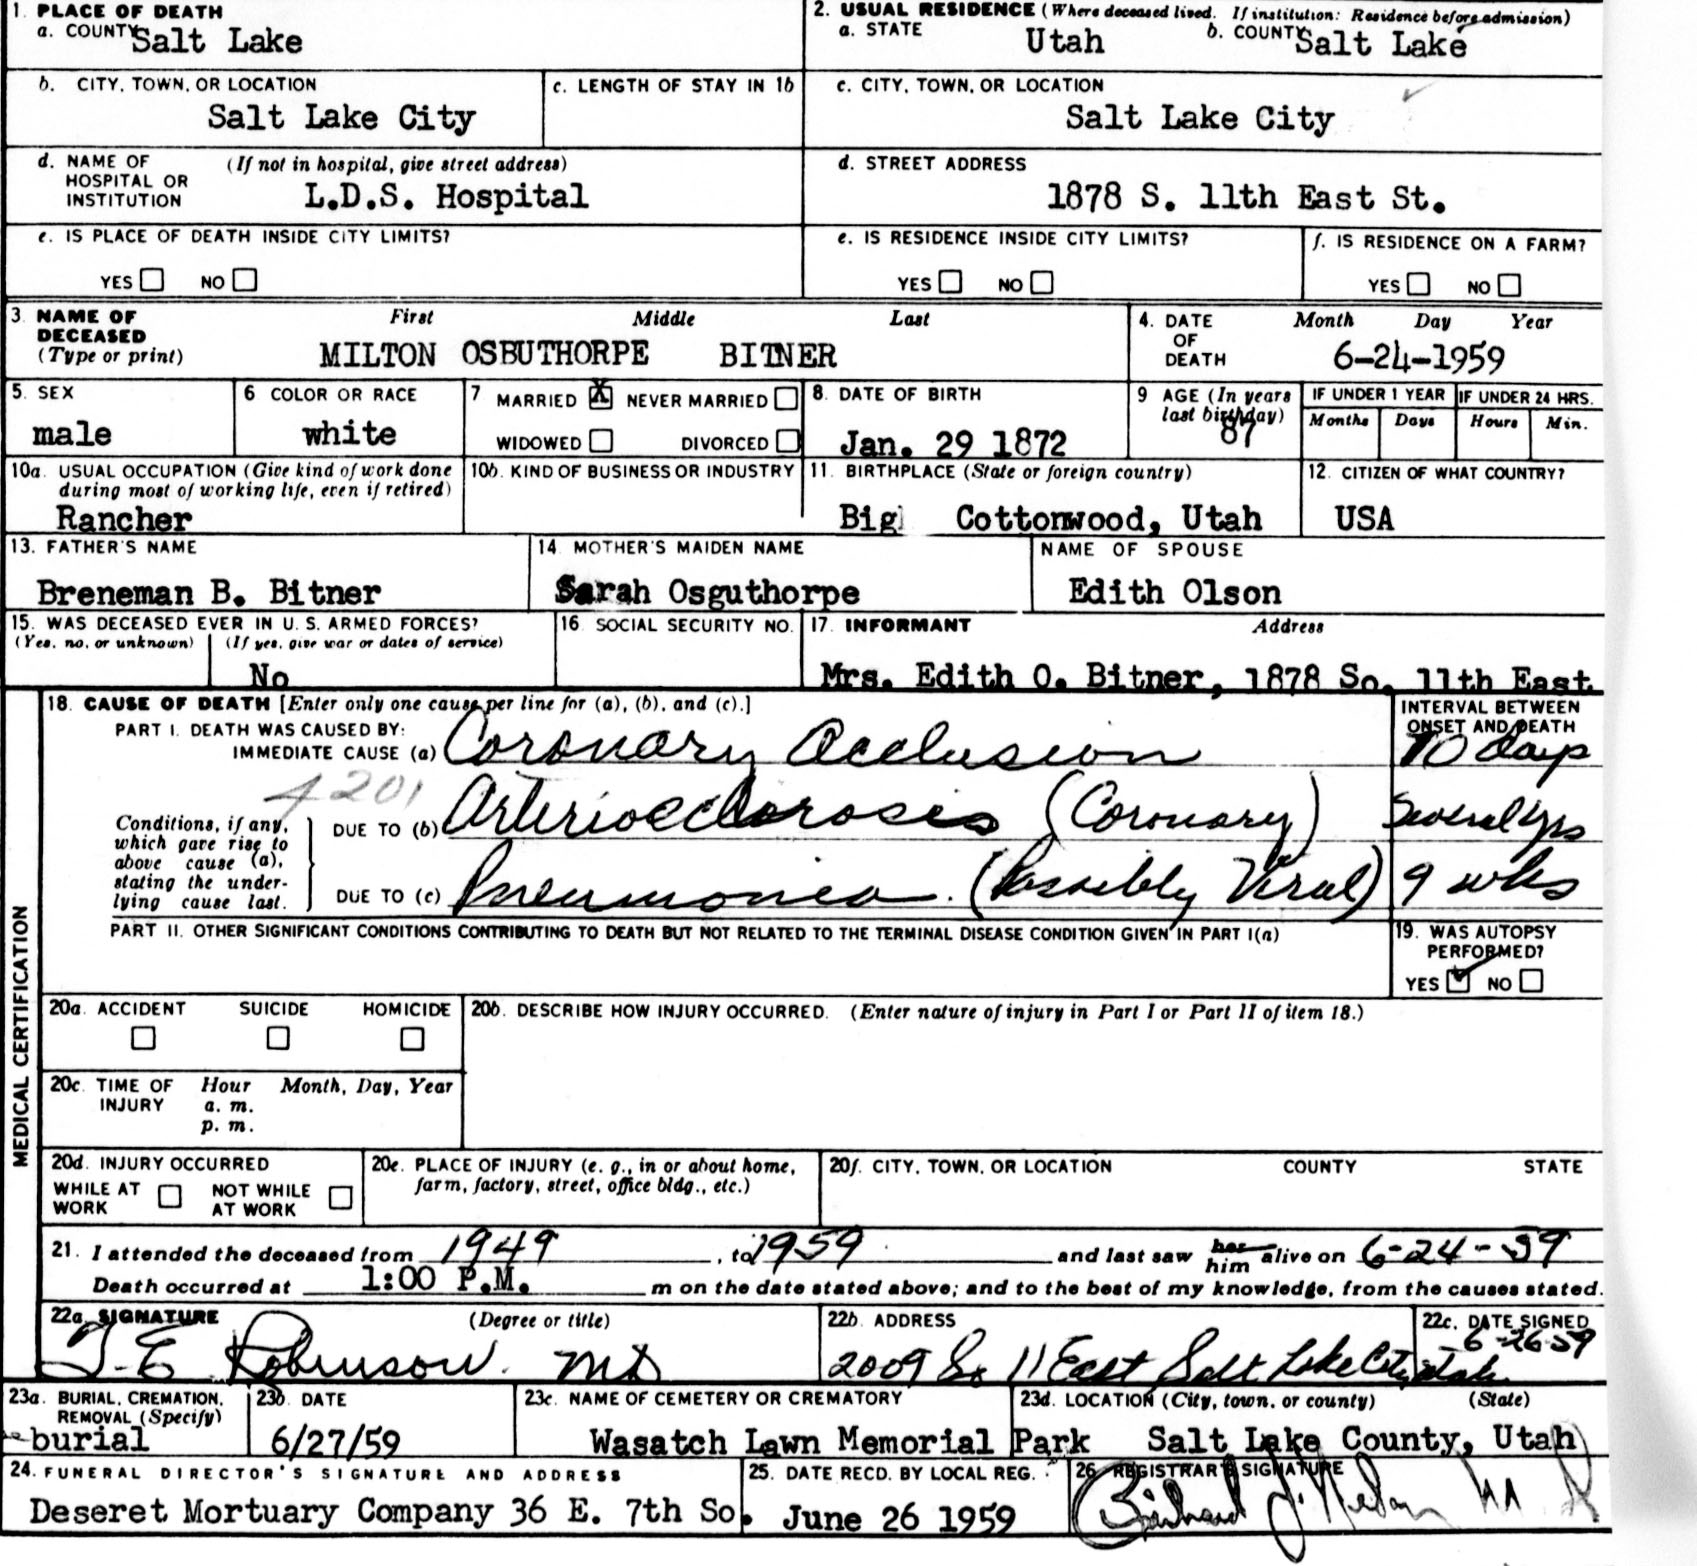 1. PLACE OF DEATH
a. COUNTY Salt Lake
2. USUAL RESIDENCE (Where deceased lived. If institution: Residence before admission)
a. STATE Utah b. COUNTY Salt Lake
b. CITY, TOWN, OR LOCATION Salt Lake City
c. LENGTH OF STAY IN 1b
c. CITY, TOWN, OR LOCATION Salt Lake City
d. NAME OF HOSPITAL OR INSTITUTION (If not in hospital, give street address) L.D.S. Hospital
d. STREET ADDRESS 1878 S. 11th East St.
e. IS PLACE OF DEATH INSIDE CITY LIMITS?
YES NO
e. IS RESIDENCE INSIDE CITY LIMITS?
YES NO
f. IS RESIDENCE ON A FARM?
YES NO
3. NAME OF DECEASED (Type or print) First Middle Last
MILTON OSBUTHORPE BITNER
4. DATE OF DEATH Month Day Year
6-24-1959
5. SEX male
6 COLOR OR RACE white
7 MARRIED X NEVER MARRIED
WIDOWED DIVORCED
8. DATE OF BIRTH Jan. 29 1872
9 AGE (In years last birthday) 87
IF UNDER 1 YEAR IF UNDER 24 HRS.
Months Days Hours Min.
10a. USUAL OCCUPATION (Give kind of work done during most of working life, even if retired)
Rancher
10b. KIND OF BUSINESS OR INDUSTRY
11. BIRTHPLACE (State or foreign country)
Big Cottonwood, Utah
12. CITIZEN OF WHAT COUNTRY?
USA
13. FATHER'S NAME
Breneman B. Bitner
14. MOTHER'S MAIDEN NAME
Sarah Osguthorpe
NAME OF SPOUSE
Edith Olson
15. WAS DECEASED EVER IN U. S. ARMED FORCES?
(Yes, no, or unknown) (If yes, give war or dates of service)
No
16. SOCIAL SECURITY NO.
17. INFORMANT Address
Mrs. Edith O. Bitner, 1878 So. 11th East
MEDICAL CERTIFICATION
18. CAUSE OF DEATH [Enter only one cause per line for (a), (b), and (c).]
INTERVAL BETWEEN ONSET AND DEATH
PART I. DEATH WAS CAUSED BY:
IMMEDIATE CAUSE (a) Coronary Occlusion 10 days
4201
Conditions, if any, which gave rise to above cause (a), stating the underlying cause last.
DUE TO (b) Arteriosclerosis (Coronary) Several yrs
DUE TO (c) Pneumonia. (Possibly Viral) 9 wks
PART II. OTHER SIGNIFICANT CONDITIONS CONTRIBUTING TO DEATH BUT NOT RELATED TO THE TERMINAL DISEASE CONDITION GIVEN IN PART I(a)
19. WAS AUTOPSY PERFORMED?
YES NO
20a. ACCIDENT SUICIDE HOMICIDE
20b. DESCRIBE HOW INJURY OCCURRED. (Enter nature of injury in Part I or Part II of item 18.)
20c. TIME OF INJURY Hour Month, Day, Year
a. m.
p. m.
20d. INJURY OCCURRED
WHILE AT WORK NOT WHILE AT WORK
20e. PLACE OF INJURY (e. g., in or about home, farm, factory, street, office bldg., etc.)
20f. CITY, TOWN, OR LOCATION COUNTY STATE
21. I attended the deceased from 1949, to 1959 and last saw her him alive on 6-24-59
Death occurred at 1:00 P.M. m on the date stated above; and to the best of my knowledge, from the causes stated.
22a. SIGNATURE (Degree or title)
T-E Robinson. MD
22b. ADDRESS
2009 So 11 East Salt Lake City Utah
22c. DATE SIGNED
6-26-59
23a. BURIAL, CREMATION, REMOVAL (Specify)
burial
23b. DATE
6/27/59
23c. NAME OF CEMETERY OR CREMATORY
Wasatch Lawn Memorial Park
23d. LOCATION (City, town, or county) (State)
Salt Lake County, Utah
24. FUNERAL DIRECTOR'S SIGNATURE AND ADDRESS
Deseret Mortuary Company 36 E. 7th So.
25. DATE RECD. BY LOCAL REG.
June 26 1959
26. REGISTRAR'S SIGNATURE